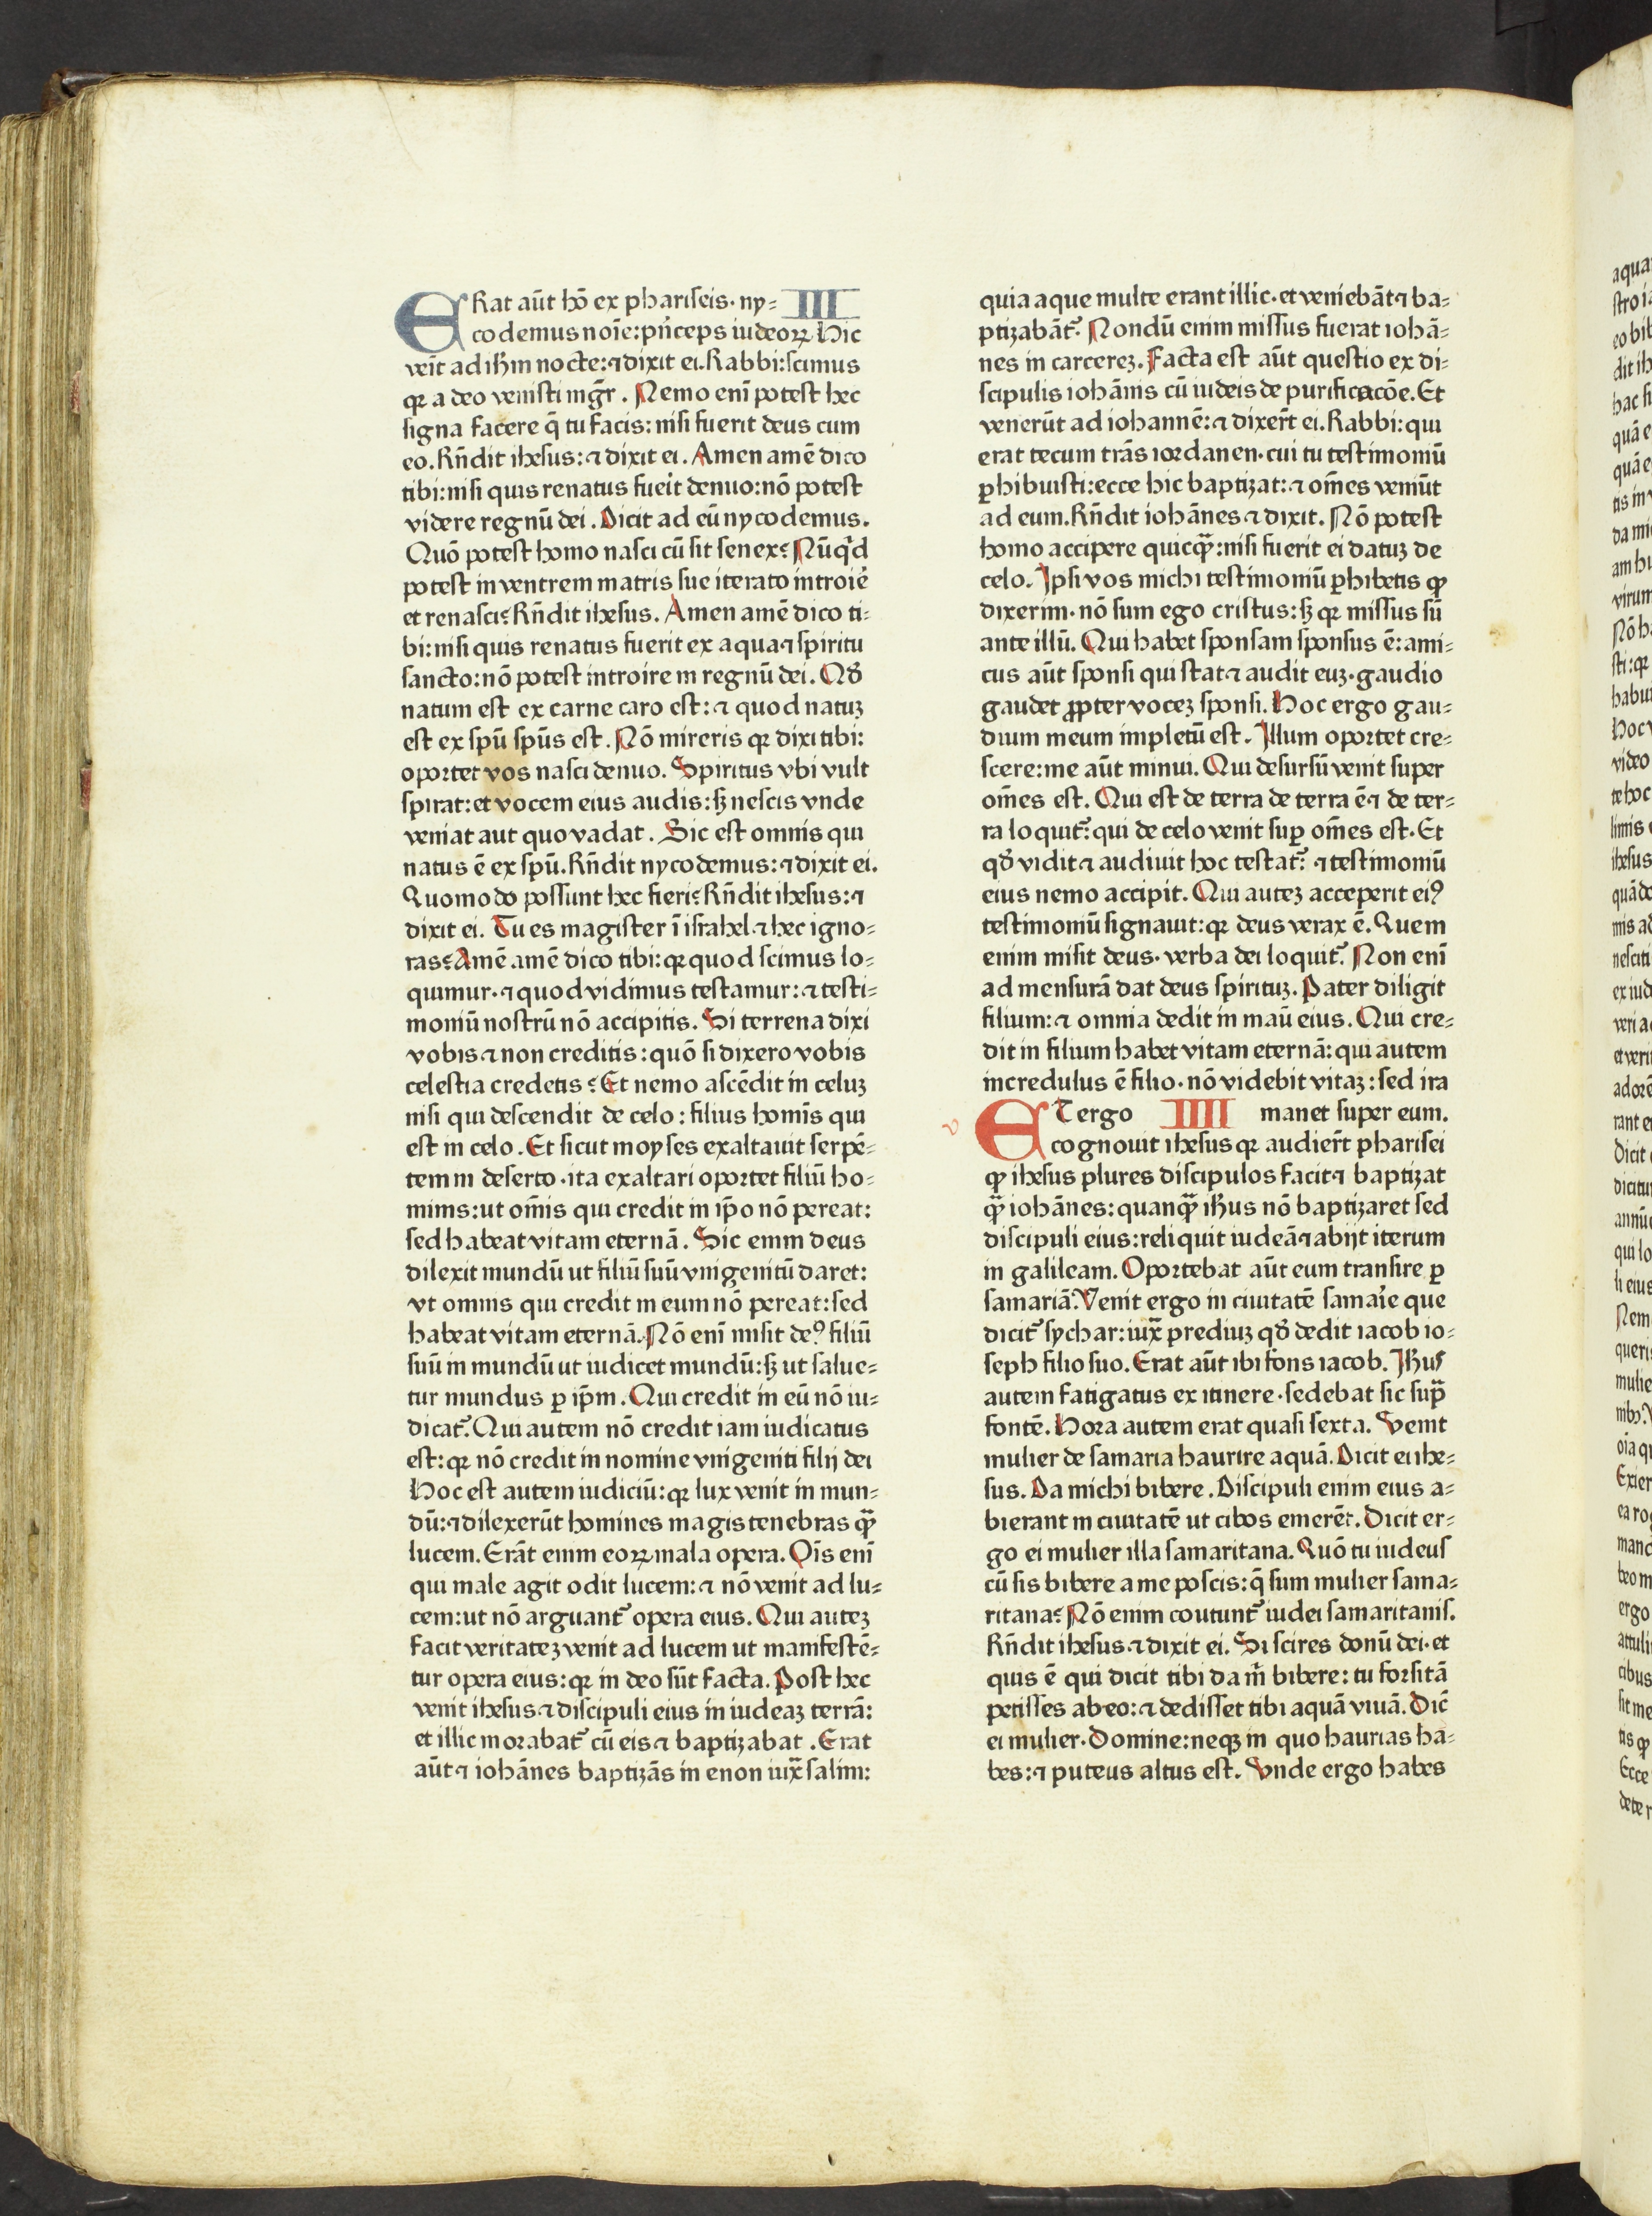 ERat aūt hō ex phariseis· ny= III
codemus noīe: pn̄ceps iudeoꝝ. Hic
veīt ad ihm̄ nocte: ⁊ dixit ei. Rabbi: scimus
qꝛ a deo venisti mgr̄. Nemo enī potest hec
signa facere q̄ tu facis: nisi fuerit deus cum
eo. Rn̄dit ihesus: ⁊ dixit ei. Amen amē dico
tibi: nisi quis renatus fueit denuo: nō potest
videre regnū dei. Dicit ad eū nycodemus.
Quō potest homo nasci cū sit senex? Nūqd
potest in ventrem matris sue iterato introiē
et renasci? Rn̄dit ihesus. Amen amē dico ti=
bi: nisi quis renatus fuerit ex aqua ⁊ spiritu
sancto: nō potest introire in regnū dei. Qđ
natum est ex carne caro est: ⁊ quod natuꝫ
est ex spū spūs est. Nō mireris qꝛ dixi tibi:
oportet vos nasci denuo. Spiritus vbi vult
spirat: et vocem eius audis: sꝫ nescis vnde
veniat aut quo vadat. Sic est omnis qui
natus ē ex spū. Rn̄dit nycodemus: ⁊ dixit ei.
Quomodo possunt hec fieri? Rn̄dit ihesus: ⁊
dixit ei. Tu es magister ī israhel ⁊ hec igno=
ras? Amē amē dico tibi: qꝛ quod scimus lo=
quimur· ⁊ quod vidimus testamur: ⁊ testi=
moniū nostrū nō accipitis. Si terrena dixi
vobis ⁊ non creditis: quō si dixero vobis
celestia credetis? Et nemo ascēdit in celuꝫ
nisi qui descendit de celo: filius homīs qui
est in celo. Et sicut moyses exaltauit serpē=
tem in deserto· ita exaltari oportet filiū ho=
minis: ut om̄is qui credit in ip̄o nō pereat:
sed habeat vitam eternā. Sic enim deus
dilexit mundū ut filiū suū vnigenitū daret:
vt omnis qui credit in eum nō pereat: sed
habeat vitam eternā. Nō enī misit deꝰ filiū
suū in mundū ut iudicet mundū: sꝫ ut salue=
tur mundus ꝑ ip̄m. Qui credit in eū nō iu=
dicat᷑. Qui autem nō credit iam iudicatus
est: qꝛ nō credit in nomine vnigeniti filij dei
Hoc est autem iudiciū: qꝛ lux venit in mun=
dū: ⁊ dilexerūt homines magis tenebras qꝫ̄
lucem. Erāt enim eoꝝ mala opera. Oīs enī
qui male agit odit lucem: ⁊ nō venit ad lu=
cem: ut nō arguant᷑ opera eius. Qui auteꝫ
facit veritateꝫ venit ad lucem ut manifestē=
tur opera eius: qꝛ in deo sūt facta. Post hec
venit ihesus ⁊ discipuli eius in iudeaꝫ terrā:
et illic morabat᷑ cū eis ⁊ baptizabat. Erat
aūt ⁊ iohānes baptizās in enon iux̄ salim:
quia aque multe erant illic· et veniebāt ⁊ ba=
ptizabāt᷑. Nondū enim missus fuerat iohā=
nes in carcereꝫ. Facta est aūt questio ex di=
scipulis iohānis cū iudeis de purificacōe. Et
venerūt ad iohannē: ⁊ dixer̄t ei. Rabbi: qui
erat tecum trās iordanen· cui tu testimoniū
ꝑhibuisti: ecce hic baptizat: ⁊ om̄es veniūt
ad eum. Rn̄dit iohānes ⁊ dixit. Nō potest
homo accipere quicqꝫ̄: nisi fuerit ei datuꝫ de
celo. Ipsi vos michi testimoniū ꝑhibetis ꝙ
dixerim· nō sum ego cristus: sꝫ qꝛ missus sū
ante illū. Qui habet sponsam sponsus ē: ami=
cus aūt sponsi qui stat ⁊ audit euꝫ· gaudio
gaudet ꝓpter voceꝫ sponsi. Hoc ergo gau=
dium meum impletū est. Illum oportet cre=
scere: me aūt minui. Qui desursū venit super
om̄es est. Qui est de terra de terra ē ⁊ de ter=
ra loquit᷑: qui de celo venit suꝑ om̄es est. Et
qđ vidit ⁊ audiuit hoc testat᷑: ⁊ testimoniū
eius nemo accipit. Qui auteꝫ acceperit eiꝰ
testimoniū signauit: qꝛ deus verax ē. Quem
enim misit deus· verba dei loquit᷑. Non enī
ad mensurā dat deus spirituꝫ. Pater diligit
filium: ⁊ omnia dedit in maū eius. Qui cre=
dit in filium habet vitam eternā: qui autem
incredulus ē filio· nō videbit vitaꝫ: sed ira
v ET ergo IIII manet super eum.
cognouit ihesus qꝛ audier̄t pharisei
ꝙ ihesus plures discipulos facit ⁊ baptizat
qꝫ̄ iohānes: quanqꝫ̄ ihus nō baptizaret sed
discipuli eius: reliquit iudeā ⁊ abijt iterum
in galileam. Oportebat aūt eum transire ꝑ
samariā. Venit ergo in ciuitatē samaīe que
dicit᷑ sychar: iux̄ prediuꝫ qđ dedit iacob io=
seph filio suo. Erat aūt ibi fons iacob. Ihus
autem fatigatus ex itinere· sedebat sic sup̄
fontē. Hora autem erat quasi sexta. Venit
mulier de samaria haurire aquā. Dicit ei ihe=
sus. Da michi bibere. Discipuli enim eius a=
bierant in ciuitatē ut cibos emerēt. Dicit er=
go ei mulier illa samaritana. Quō tu iudeus
cū sis bibere a me poscis: q̄ sum mulier sama=
ritana? Nō enim coutunt᷑ iudei samaritanis.
Rn̄dit ihesus ⁊ dixit ei. Si scires donū dei· et
quis ē qui dicit tibi da m̄ bibere: tu forsitā
petisses ab eo: ⁊ dedisset tibi aquā viuā. Dic̄
ei mulier. Domine: neqꝫ in quo haurias ha=
bes: ⁊ puteus altus est. Vnde ergo habes